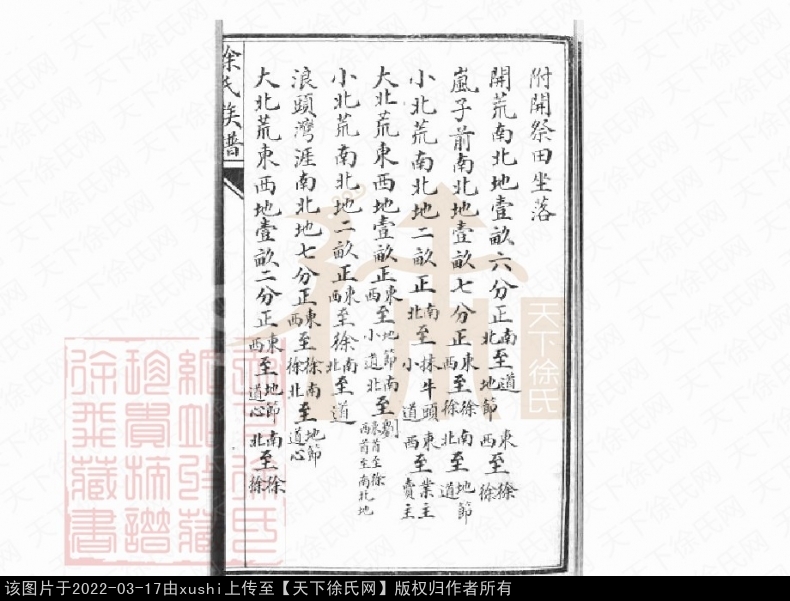 附開祭田坐落
開荒南北地壹畝六分正南北至道地節東西至徐徐
嵐子前南北地壹畝七分正東西至徐徐南北至地節道
小北荒南北地二畝正南北至抹牛頭小道東西至業主賣主
大北荒東西地壹畝正東西至地節小道南北至劉東首至徐西首至南北地
小北荒南北地二畝正東西至徐南北至道
浪頭灣涯南北地七分正東西至徐徐南北至地節道心
大北荒東西地壹畝二分正東西至地節道心南北至徐徐
徐氏族譜
天下徐氏
天下徐氏网
该图片于2022-03-17由xushi上传至【天下徐氏网】版权归作者所有